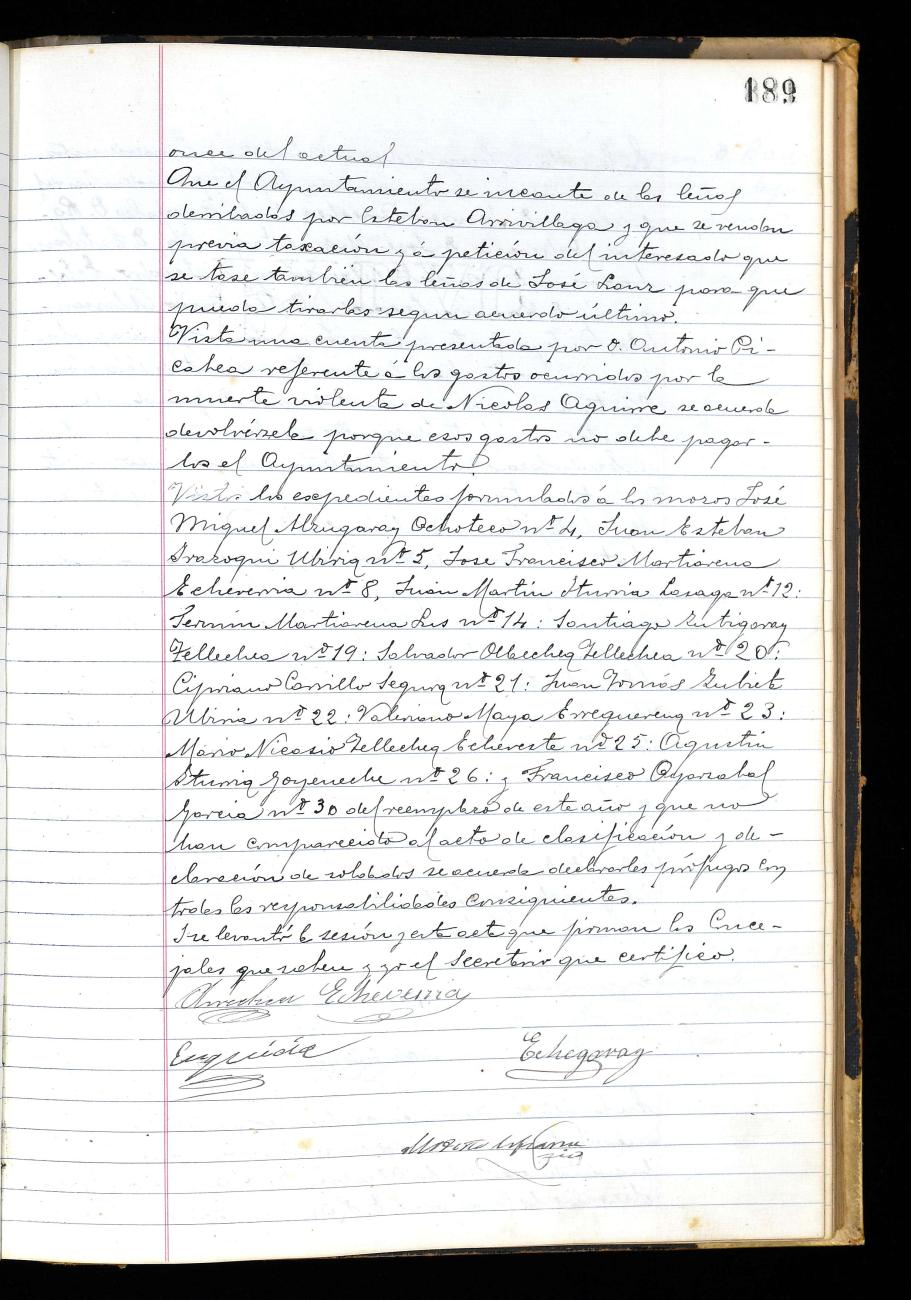 189
once del actual
Que el Ayuntamiento se incaute de las leñas
derribadas por Esteban Arrivillaga y que se vendan
previa taxación y á petición del interesado que
se tase también las leñas de José Lanz para que
pueda tirarlas segun acuerdo último.
Vista una cuenta presentada por D. Antonio Pi-
cabea referente á los gastos ocurridos por la
muerte violenta de Nicolas Aguirre se acuerda
devolvérsela porque esos gastos no debe pagar-
los el Ayuntamiento.
Vistos los expedientes formulados á los mozos José
Miguel Alzugaray Ochoteco nº 4, Juan Esteban
Irazoqui Ubiria nº 5, Jose Francisco Martiarena
Echeverria nº 8, Juan Martin Iturria Lasaga nº 12:
Fermin Martiarena Lus nº 14: Santiago
Tellechea nº 19: Salvador Olaechea Tellechea nº 20:
Cipriano Carrillo Segura nº 21: Juan Tomás Zubieta
Ubiria nº 22: Valeriano Maya Errequerena nº 23:
Mário Nicasio Tellechea Echeveste nº 25: Agustin
Iturria Goyeneche nº 26: y Francisco Oyarzabal
Garcia nº 30 del reemplazo de este año y que no
han comparecido al acto de clasificación y de-
claración de soldados se acuerda declararles prófugos con
todas las responsabilidades consiguientes.
I se levantó la sesión y esta acta que firman los Conce-
jales que saben y yo el Secretario que certifico.
Echeverria
Errguida
Echegaray